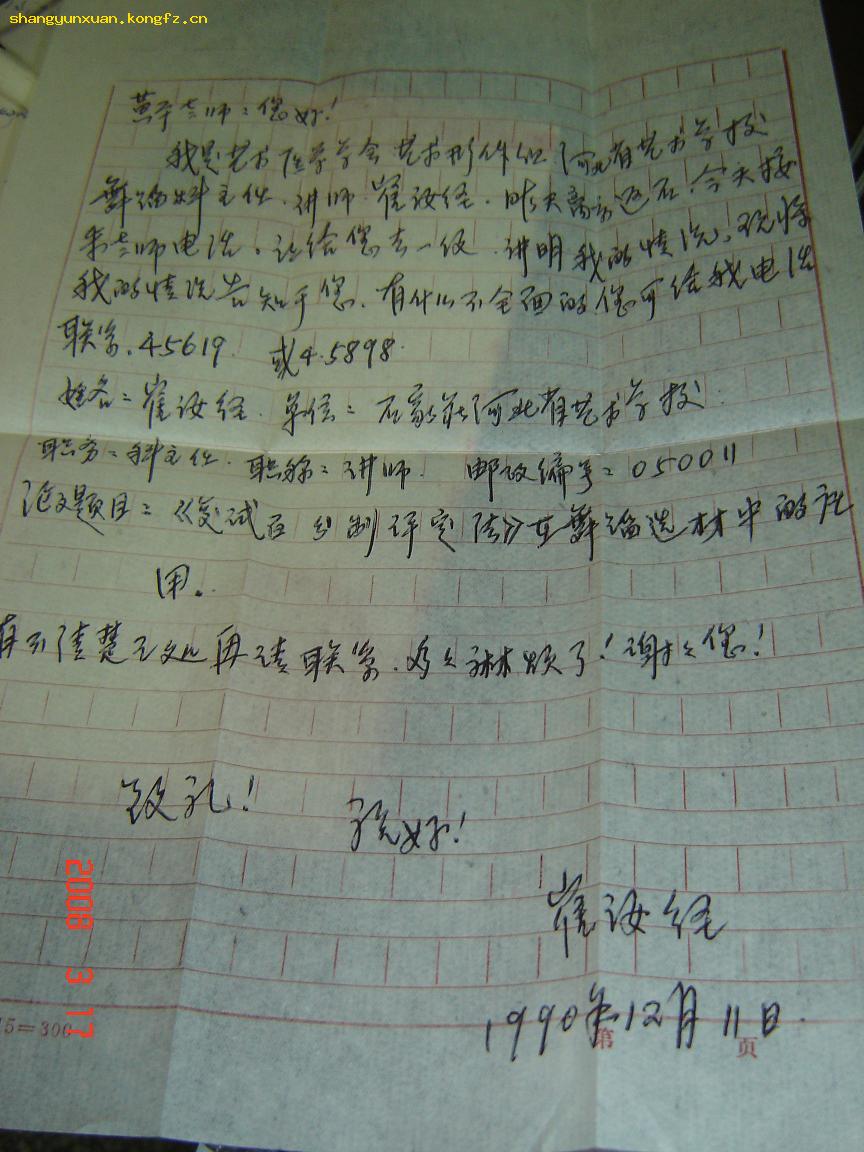 shangyunxuan.kongfz.cn
老师：您好！
我是艺术医学学会艺术形体组河北省艺术学校
舞蹈科主任．讲师 崔汝经．昨天离京返石，今天接
老师电话，让给您去一信．讲明我的情况，现将
我的情况告知于您，有什么不全面的您可给我电话
联系．45619 或45898．
姓名：崔汝经．单位：石家庄河北省艺术学校．
职务：科主任．职称：讲师． 邮政编号：050011
论文题目：《复试百分制评定法》在舞蹈选材中的应
用．
有不清楚之处再请联系．多多麻烦了！谢谢您！
致礼！ 祝好！
崔汝经
1990年12月11日．
15＝300 第 页
2008 3 17